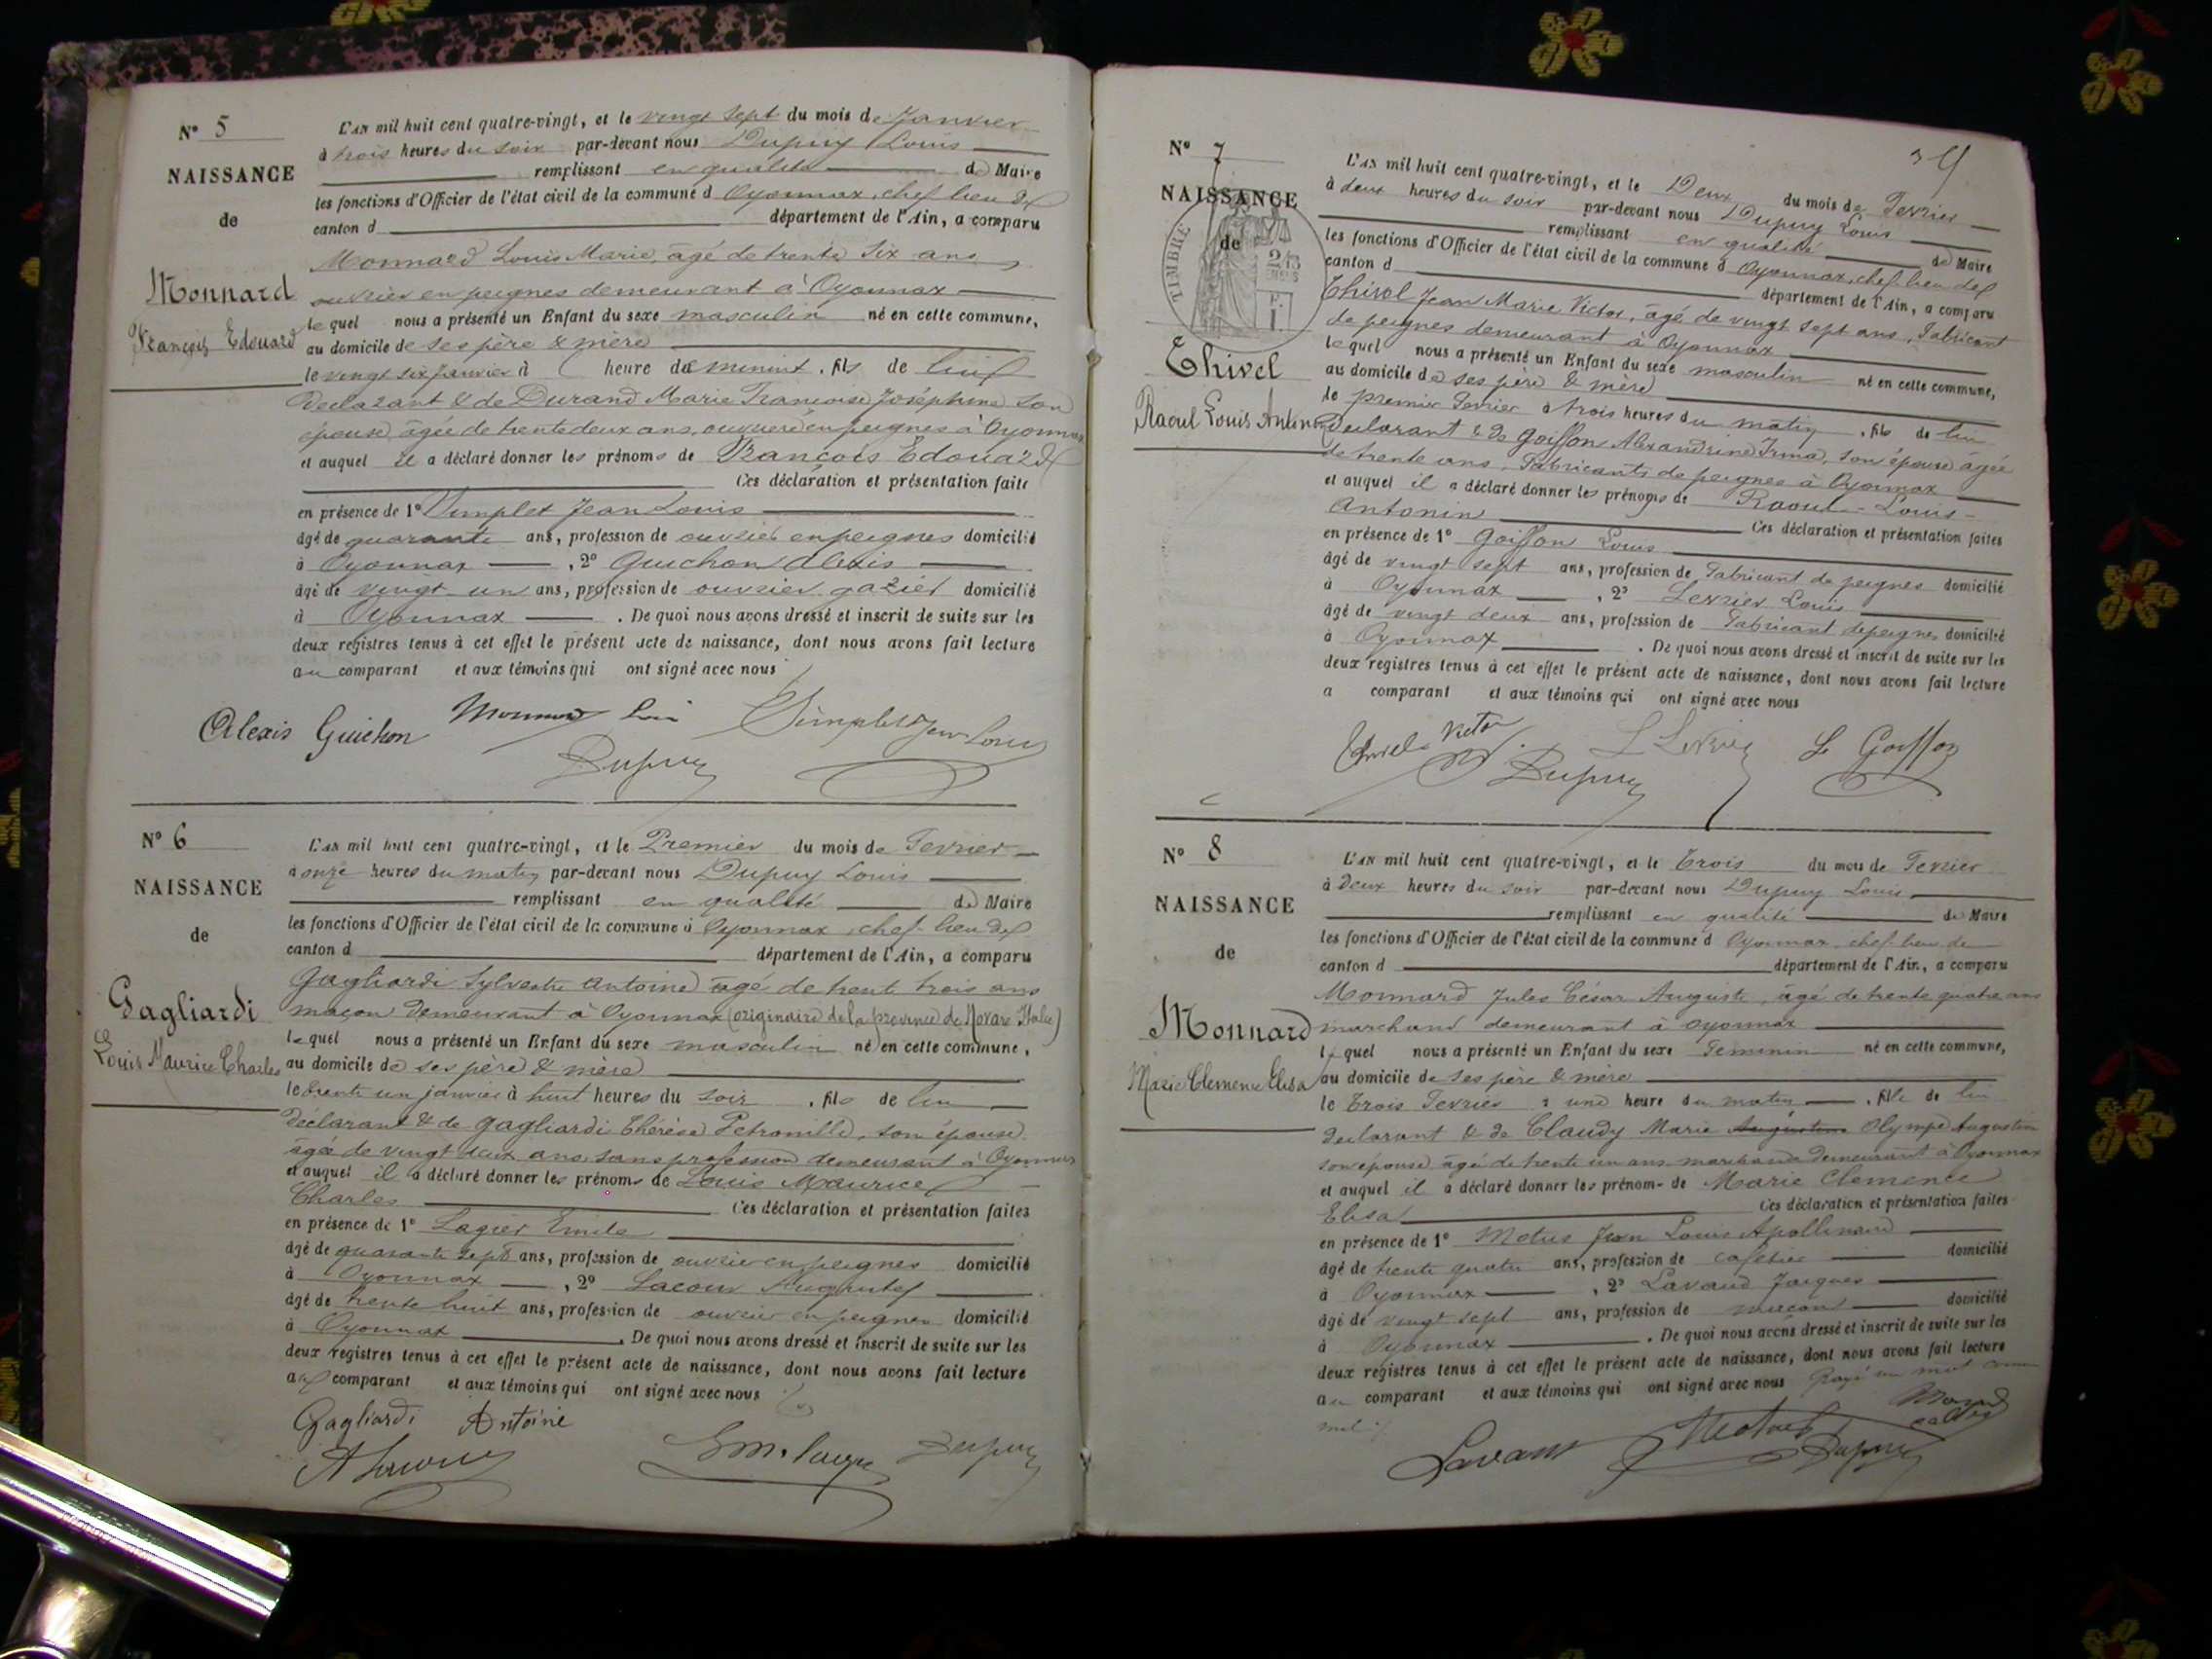 N° 5
NAISSANCE
de
Monnard
François Edouard
L'an mil huit cent quatre-vingt, et le vingt sept du mois de Janvier
à trois heures du soir par-devant nous Dupuy Louis
remplissant en qualité de Maire
les fonctions d'Officier de l'état civil de la commune d Oyonnax, chef lieu de
canton d département de l'Ain, a comparu
Monnard Louis Marie, âgé de trente six ans
ouvrier en peignes demeurant à Oyonnax
lequel nous a présenté un Enfant du sexe masculin né en cette commune,
au domicile de ses père & mère
le vingt six janvier à heure de minuit, fils de lui
déclarant & de Durand Marie Françoise Joséphine son
épouse, âgée de trente deux ans, ouvrière en peignes à Oyonnax
et auquel il a déclaré donner les prénoms de François Edouard
Ces déclaration et présentation faite
en présence de 1° Simplet Jean Louis
âgé de quarante ans, profession de ouvrier en peignes domicilié
à Oyonnax , 2° Guichon Alexis
âgé de vingt un ans, profession de ouvrier gazier domicilié
à Oyonnax . De quoi nous avons dressé et inscrit de suite sur les
deux registres tenus à cet effet le présent acte de naissance, dont nous avons fait lecture
au comparant et aux témoins qui ont signé avec nous
Alexis Guichon Monnard Louis Simplet Jean Louis
Dupuy
N° 6
NAISSANCE
de
Gagliardi
Louis Maurice Charles
L'an mil huit cent quatre-vingt, et le Premier du mois de Fevrier
à onze heures du matin par-devant nous Dupuy Louis
remplissant en qualité de Maire
les fonctions d'Officier de l'état civil de la commune d Oyonnax, chef-lieu de
canton d département de l'Ain, a comparu
Gagliardi Sylvestre Antoine âgé de trente trois ans
maçon demeurant à Oyonnax (originaire de la province de Novare Italie)
lequel nous a présenté un Enfant du sexe masculin né en cette commune,
au domicile de ses père & mère
le trente un janvier à huit heures du soir , fils de lui
déclarant & de Gagliardi Thérèse Pétronille, son épouse
âgée de vingt deux ans, sans profession demeurant à Oyonnax
et auquel il a déclaré donner les prénoms de Louis Maurice
Charles Ces déclaration et présentation faites
en présence de 1° Lagier Emile
âgé de quarante sept ans, profession de ouvrier en peignes domicilié
à Oyonnax , 2° Lacour Auguste
âgé de trente huit ans, profession de ouvrier en peignes domicilié
à Oyonnax . De quoi nous avons dressé et inscrit de suite sur les
deux registres tenus à cet effet le présent acte de naissance, dont nous avons fait lecture
au comparant et aux témoins qui ont signé avec nous
Gagliardi Antoine
Dupuy
N° 7
NAISSANCE
de
TIMBRE
Thivel
Raoul Louis Antonin
L'an mil huit cent quatre-vingt, et le Deux du mois de Fevrier
à deux heures du soir par-devant nous Dupuy Louis
remplissant en qualité de Maire
les fonctions d'Officier de l'état civil de la commune d Oyonnax, chef lieu de
canton d département de l'Ain, a comparu
Thivel Jean Marie Victor, âgé de vingt sept ans, Fabricant
de peignes demeurant à Oyonnax
lequel nous a présenté un Enfant du sexe masculin né en cette commune,
au domicile de ses père & mère
le premier Fevrier à trois heures du matin , fils de lui
déclarant & de Goiffon Alexandrine Irma, son épouse âgée
de trente ans, Fabricante de peignes à Oyonnax
et auquel il a déclaré donner les prénoms de Raoul - Louis -
Antonin Ces déclaration et présentation faites
en présence de 1° Goiffon Louis
âgé de vingt sept ans, profession de Fabricant de peignes domicilié
à Oyonnax , 2° Levrier Louis
âgé de vingt deux ans, profession de Fabricant de peignes domicilié
à Oyonnax . De quoi nous avons dressé et inscrit de suite sur les
deux registres tenus à cet effet le présent acte de naissance, dont nous avons fait lecture
a comparant et aux témoins qui ont signé avec nous
Thivel Victor L Levrier L Goiffon
Dupuy
N° 8
NAISSANCE
de
Monnard
Marie Clemence Elisa
L'an mil huit cent quatre-vingt, et le Trois du mois de Fevrier
à Deux heures du soir par-devant nous Dupuy Louis
remplissant en qualité de Maire
les fonctions d'Officier de l'état civil de la commune d Oyonnax chef lieu de
canton d département de l'Ain, a comparu
Monnard Jules César Auguste, âgé de trente quatre ans
marchand demeurant à Oyonnax
lequel nous a présenté un Enfant du sexe Feminin né en cette commune,
au domicile de ses père & mère
le Trois Fevrier à une heure du matin , fille de lui
déclarant & de Claudy Marie Augustine Olympe Augustine
son épouse, âgée de trente un ans marchande demeurant à Oyonnax
et auquel il a déclaré donner les prénoms de Marie Clemence
Elisa Ces déclaration et présentation faites
en présence de 1° Metus Jean Louis Apollinaire
âgé de trente quatre ans, profession de cafetier domicilié
à Oyonnax , 2° Lavaud Jacques
âgé de vingt sept ans, profession de maçon domicilié
à Oyonnax . De quoi nous avons dressé et inscrit de suite sur les
deux registres tenus à cet effet le présent acte de naissance, dont nous avons fait lecture
au comparant et aux témoins qui ont signé avec nous Rayé un mot comme
nul
Dupuy